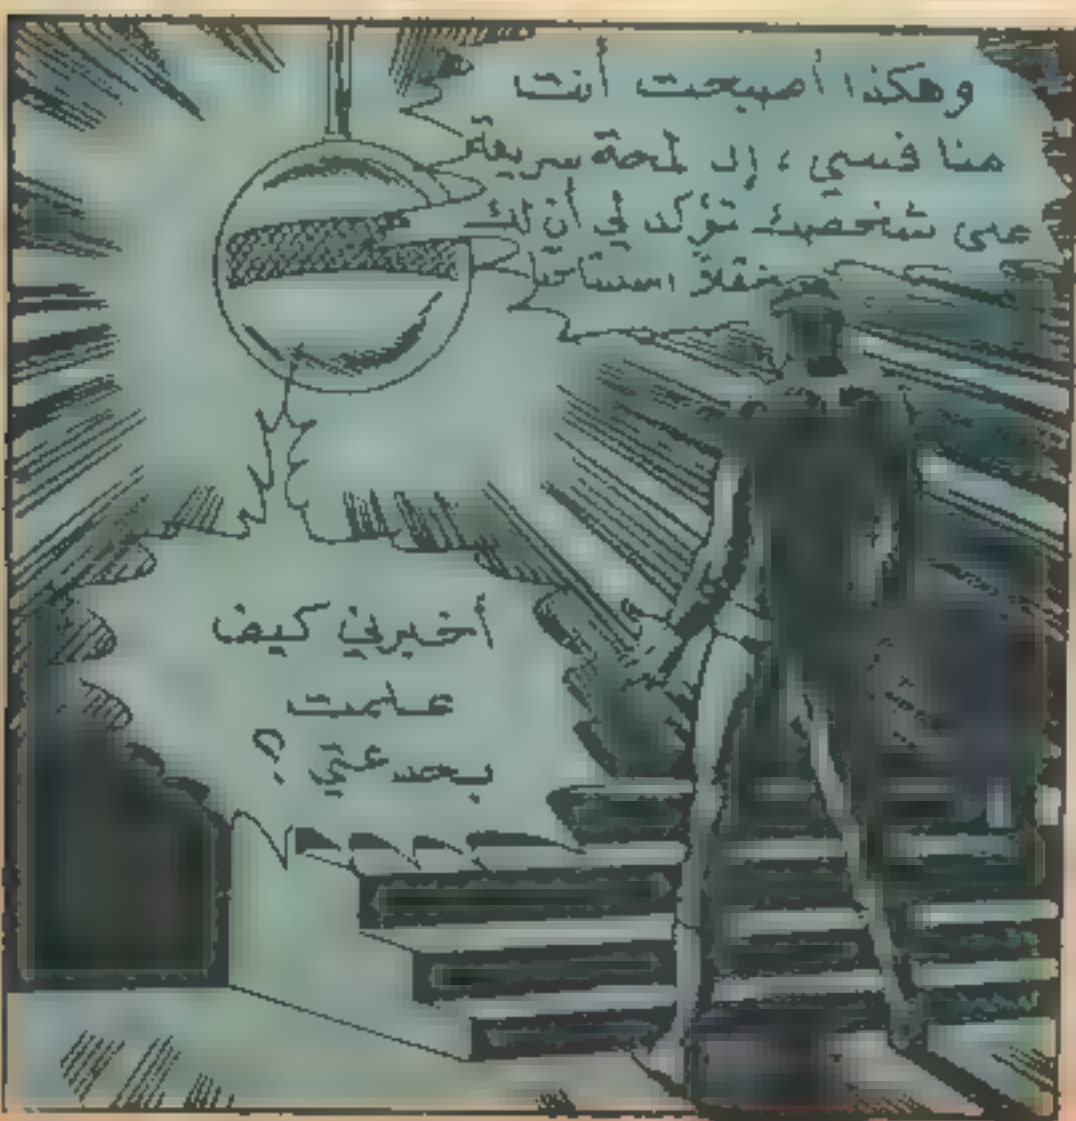 وهكذا أصبحت أنت
منافسي ، إن لمحة سريعة
على شخصك تؤكد لي أن لك
عقلاً
أخبرني كيف
علمت
بخدعتي ؟